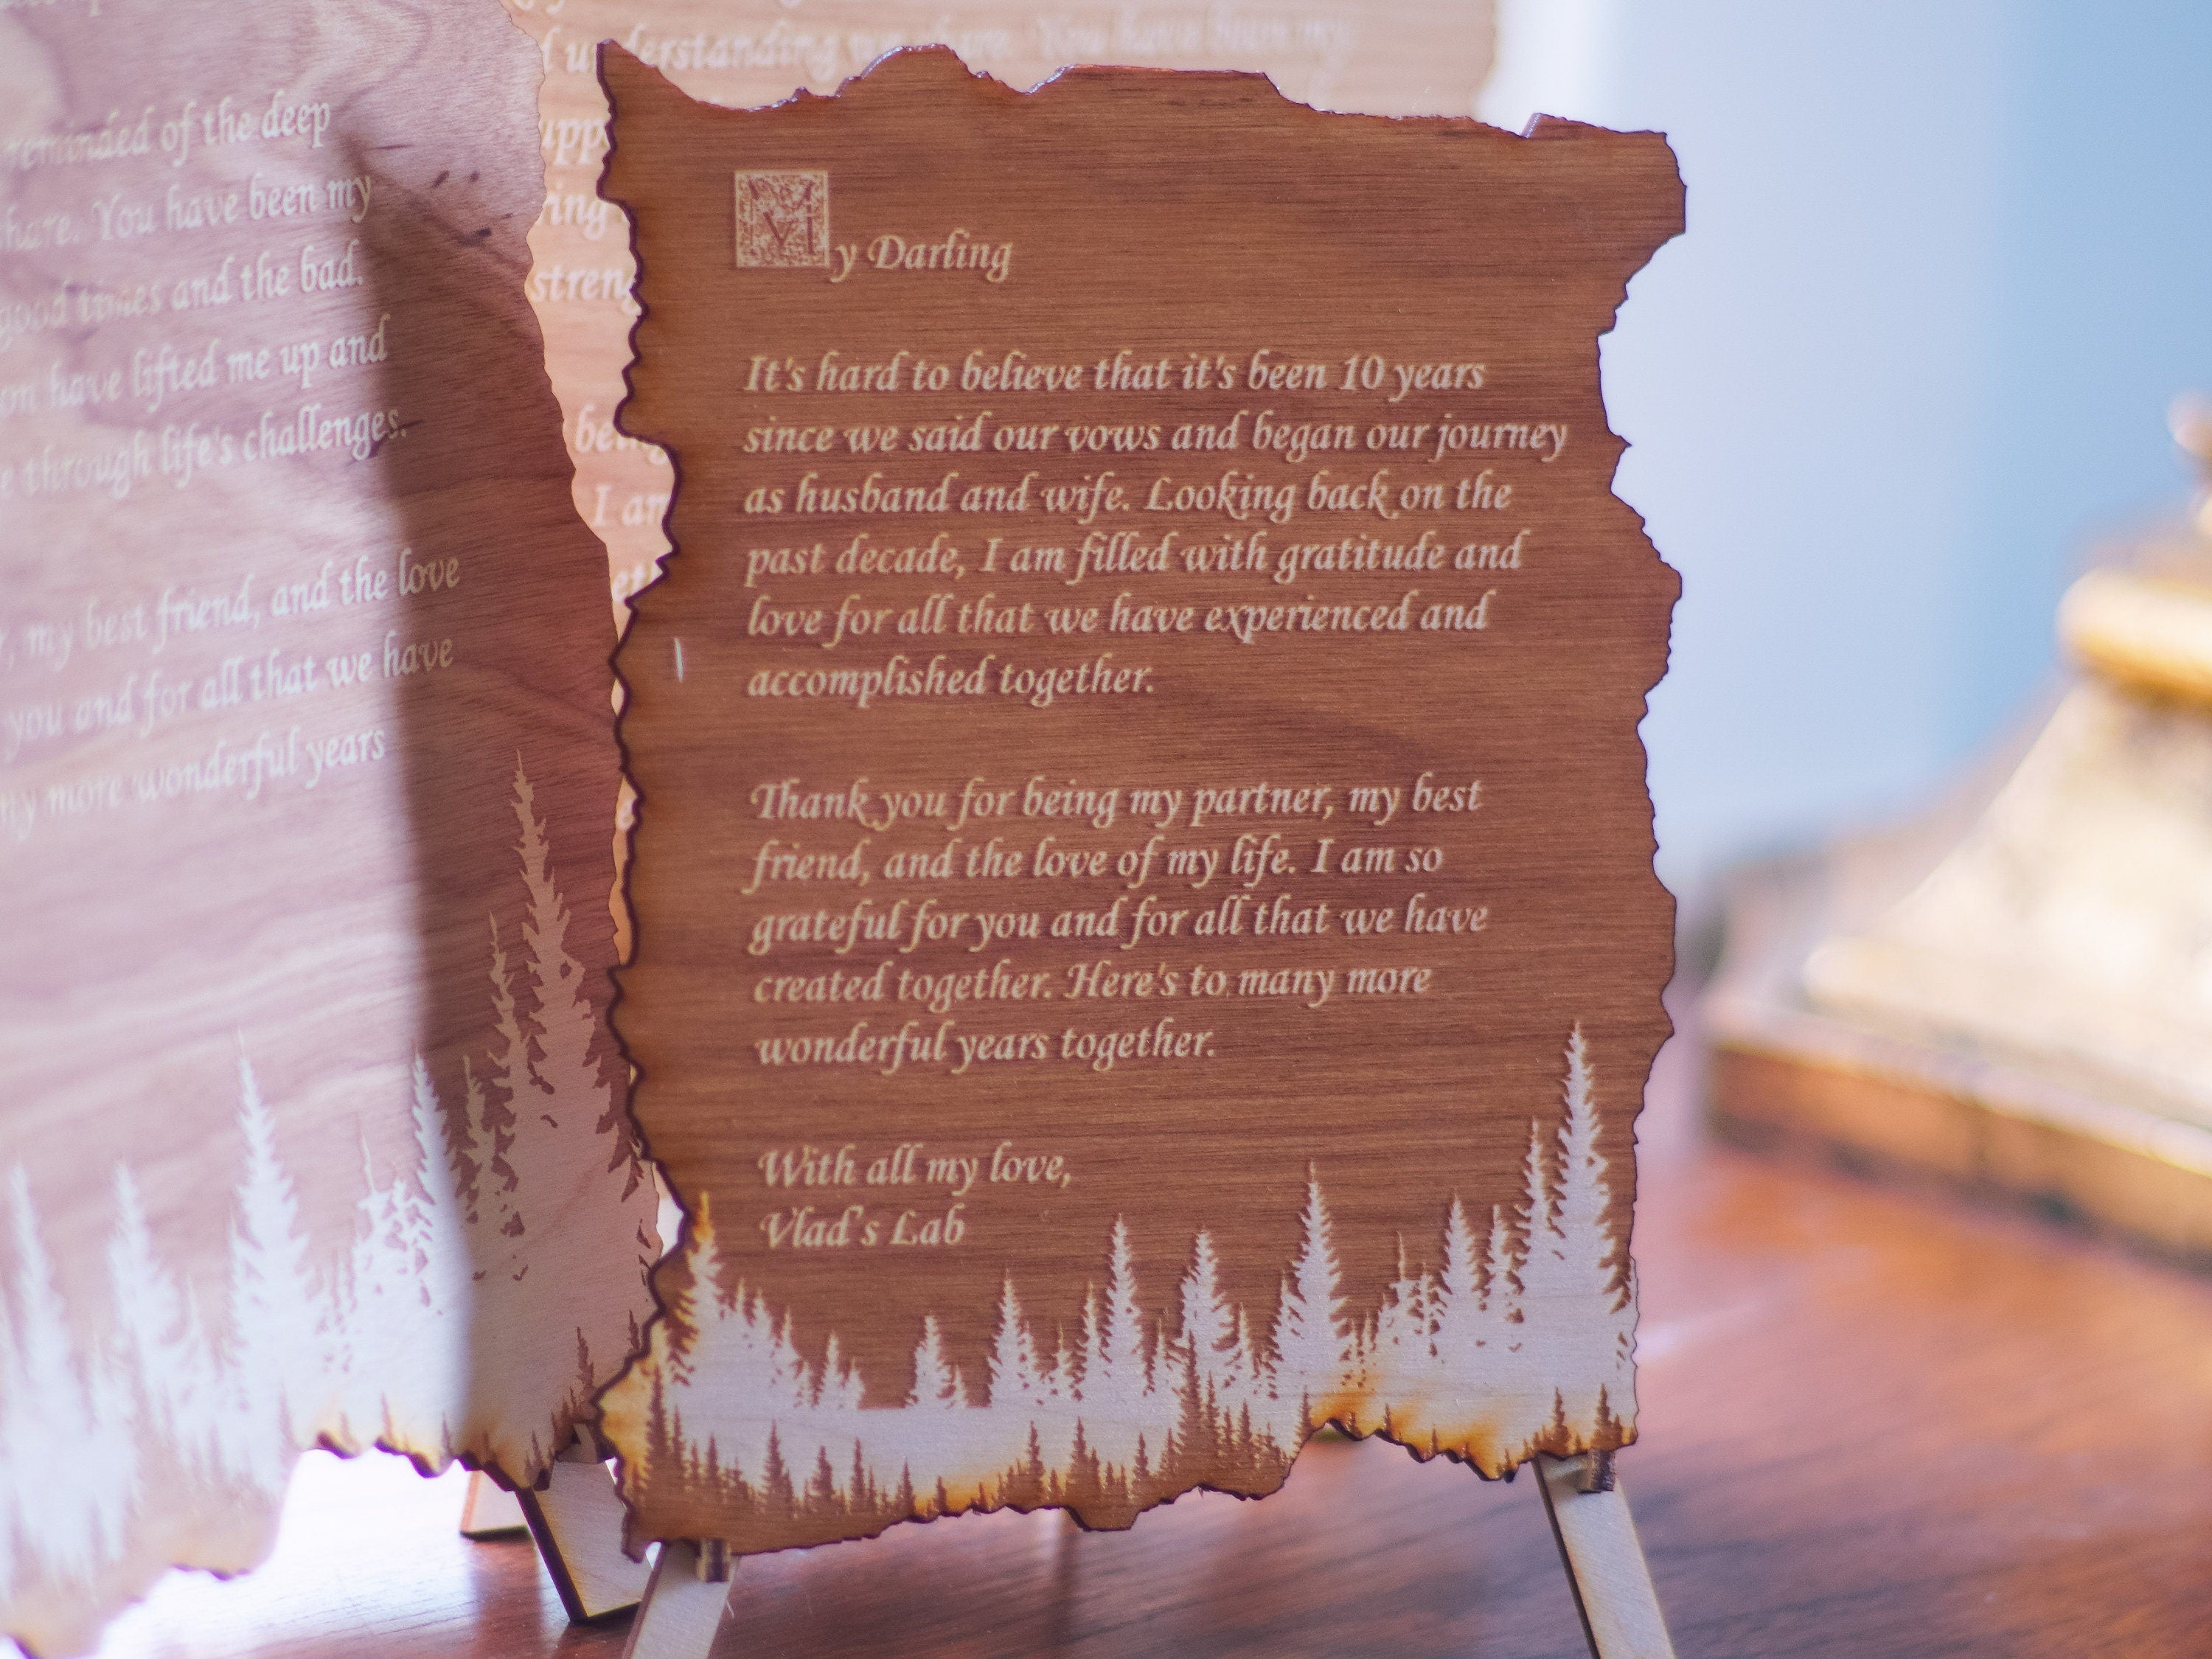 reminded of the deep
share. You have been my
good times and the bad.
have lifted me up and
through life's challenges.
my best friend, and the love
you and for all that we have
more wonderful years
understanding we share. You have been my
I am
My Darling
It's hard to believe that it's been 10 years
since we said our vows and began our journey
as husband and wife. Looking back on the
past decade, I am filled with gratitude and
love for all that we have experienced and
accomplished together.
Thank you for being my partner, my best
friend, and the love of my life. I am so
grateful for you and for all that we have
created together. Here's to many more
wonderful years together.
With all my love,
Vlad's Lab